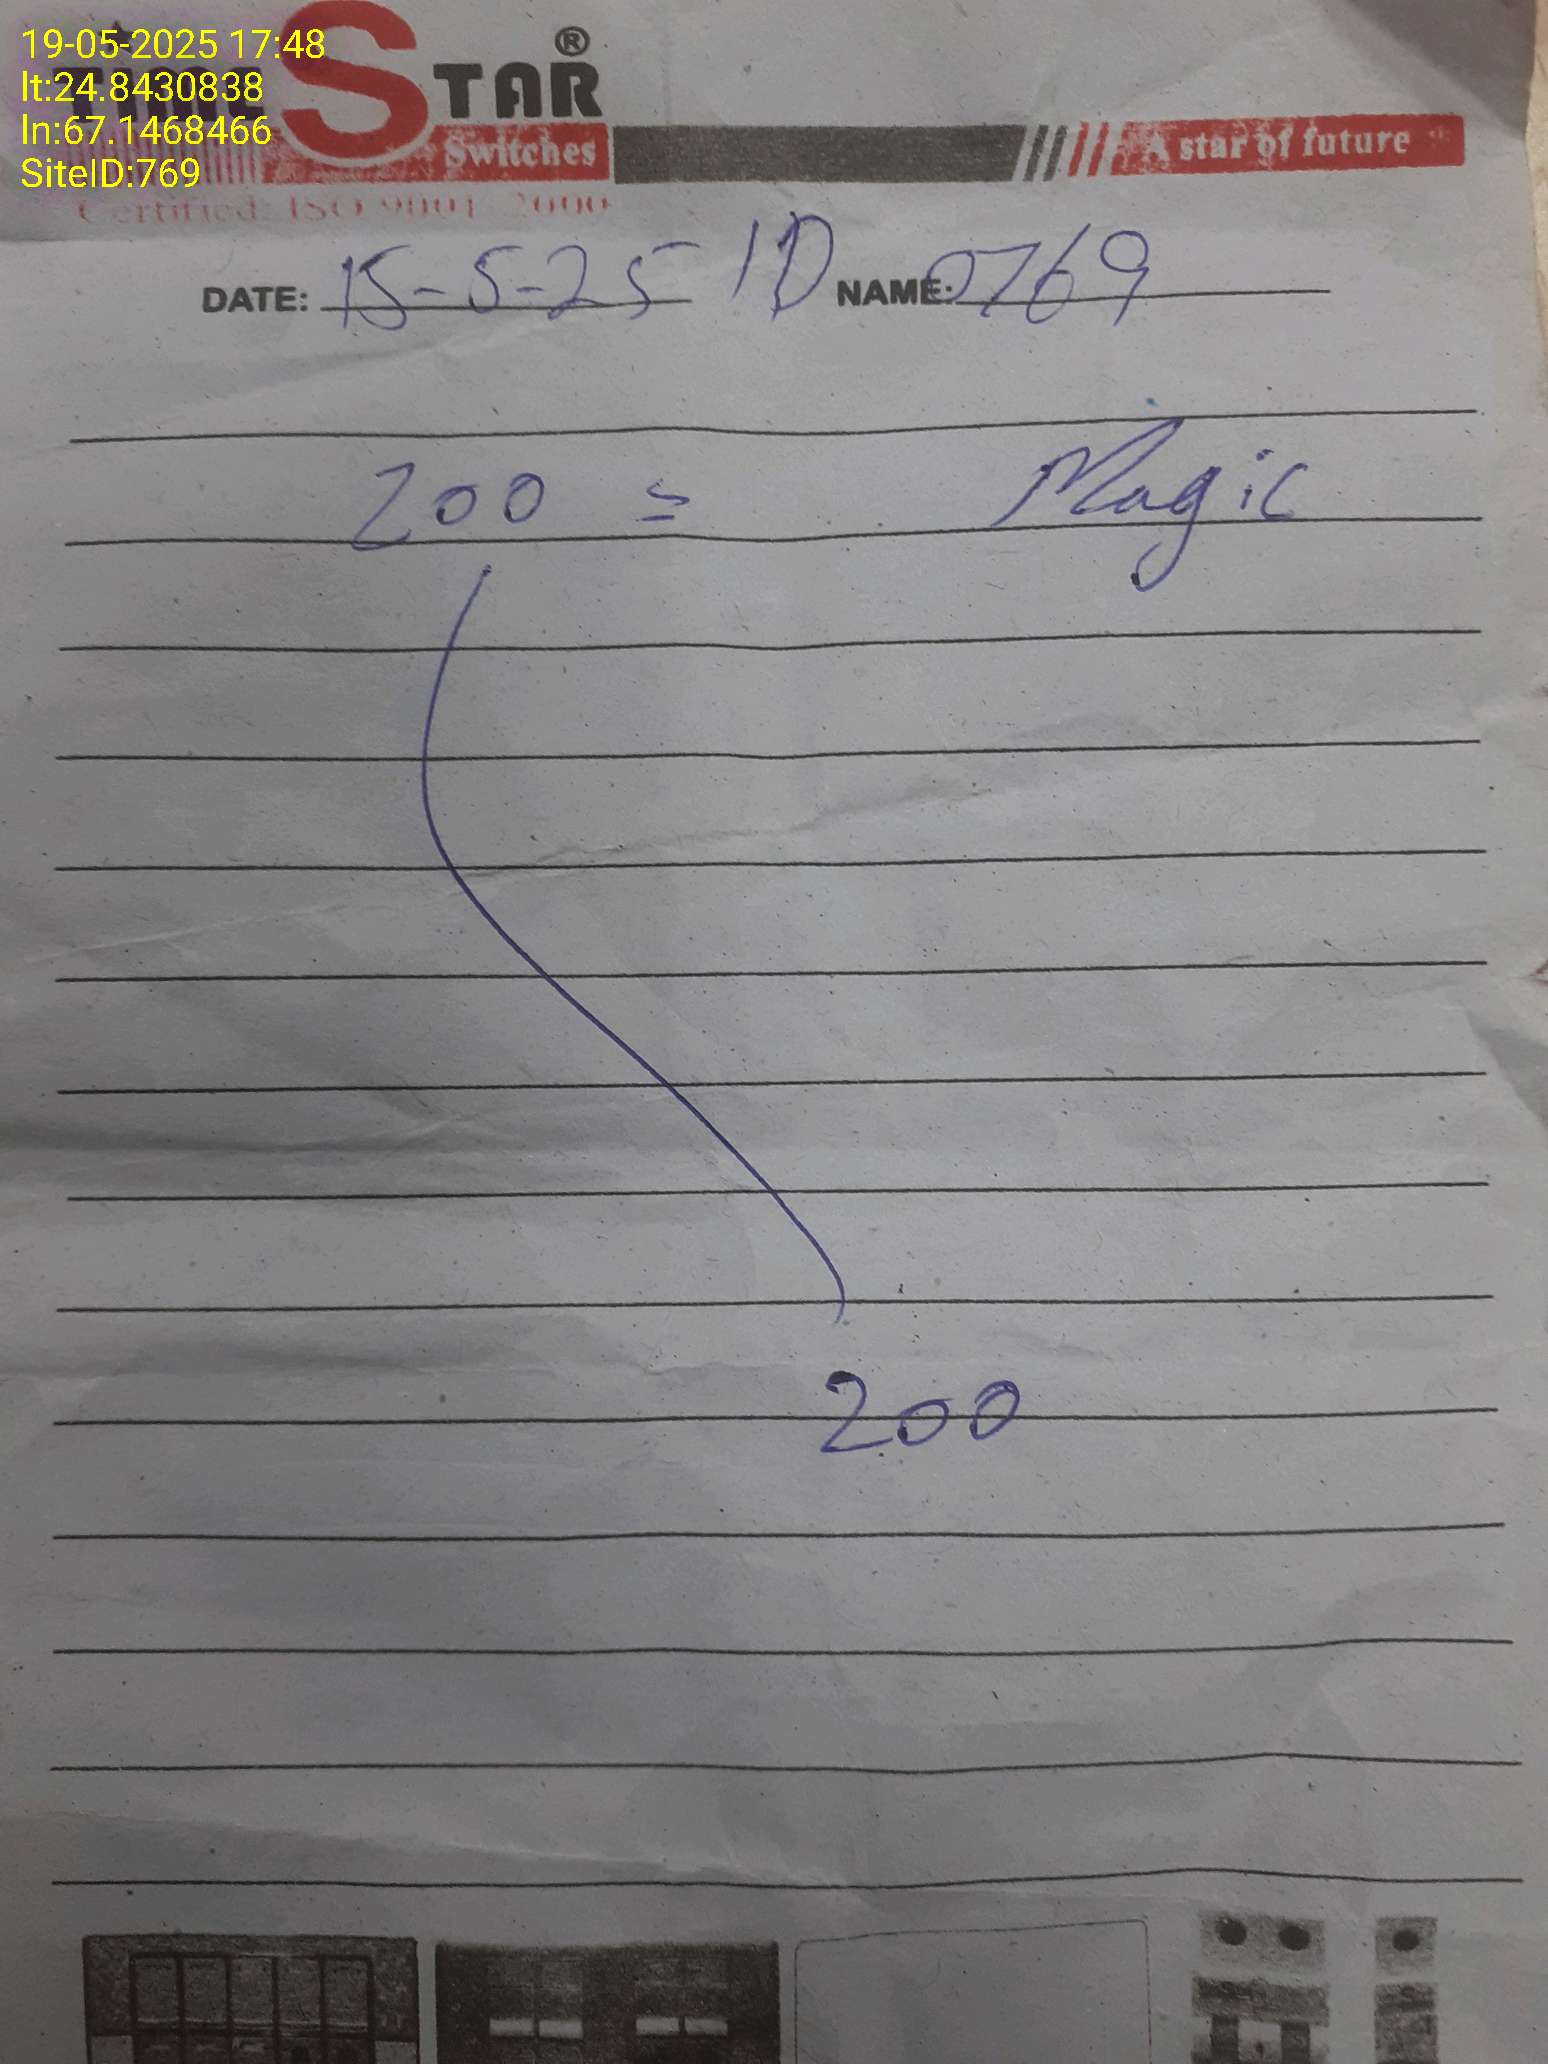 19-05-2025 17:48
lt:24.8430838
ln:67.1468466
SiteID:769
TIME STAR ®
Switches
A star of future
Certified: ISO 9001 2000
DATE: 15-5-25 ID NAME: 0769
200 = Magic
200